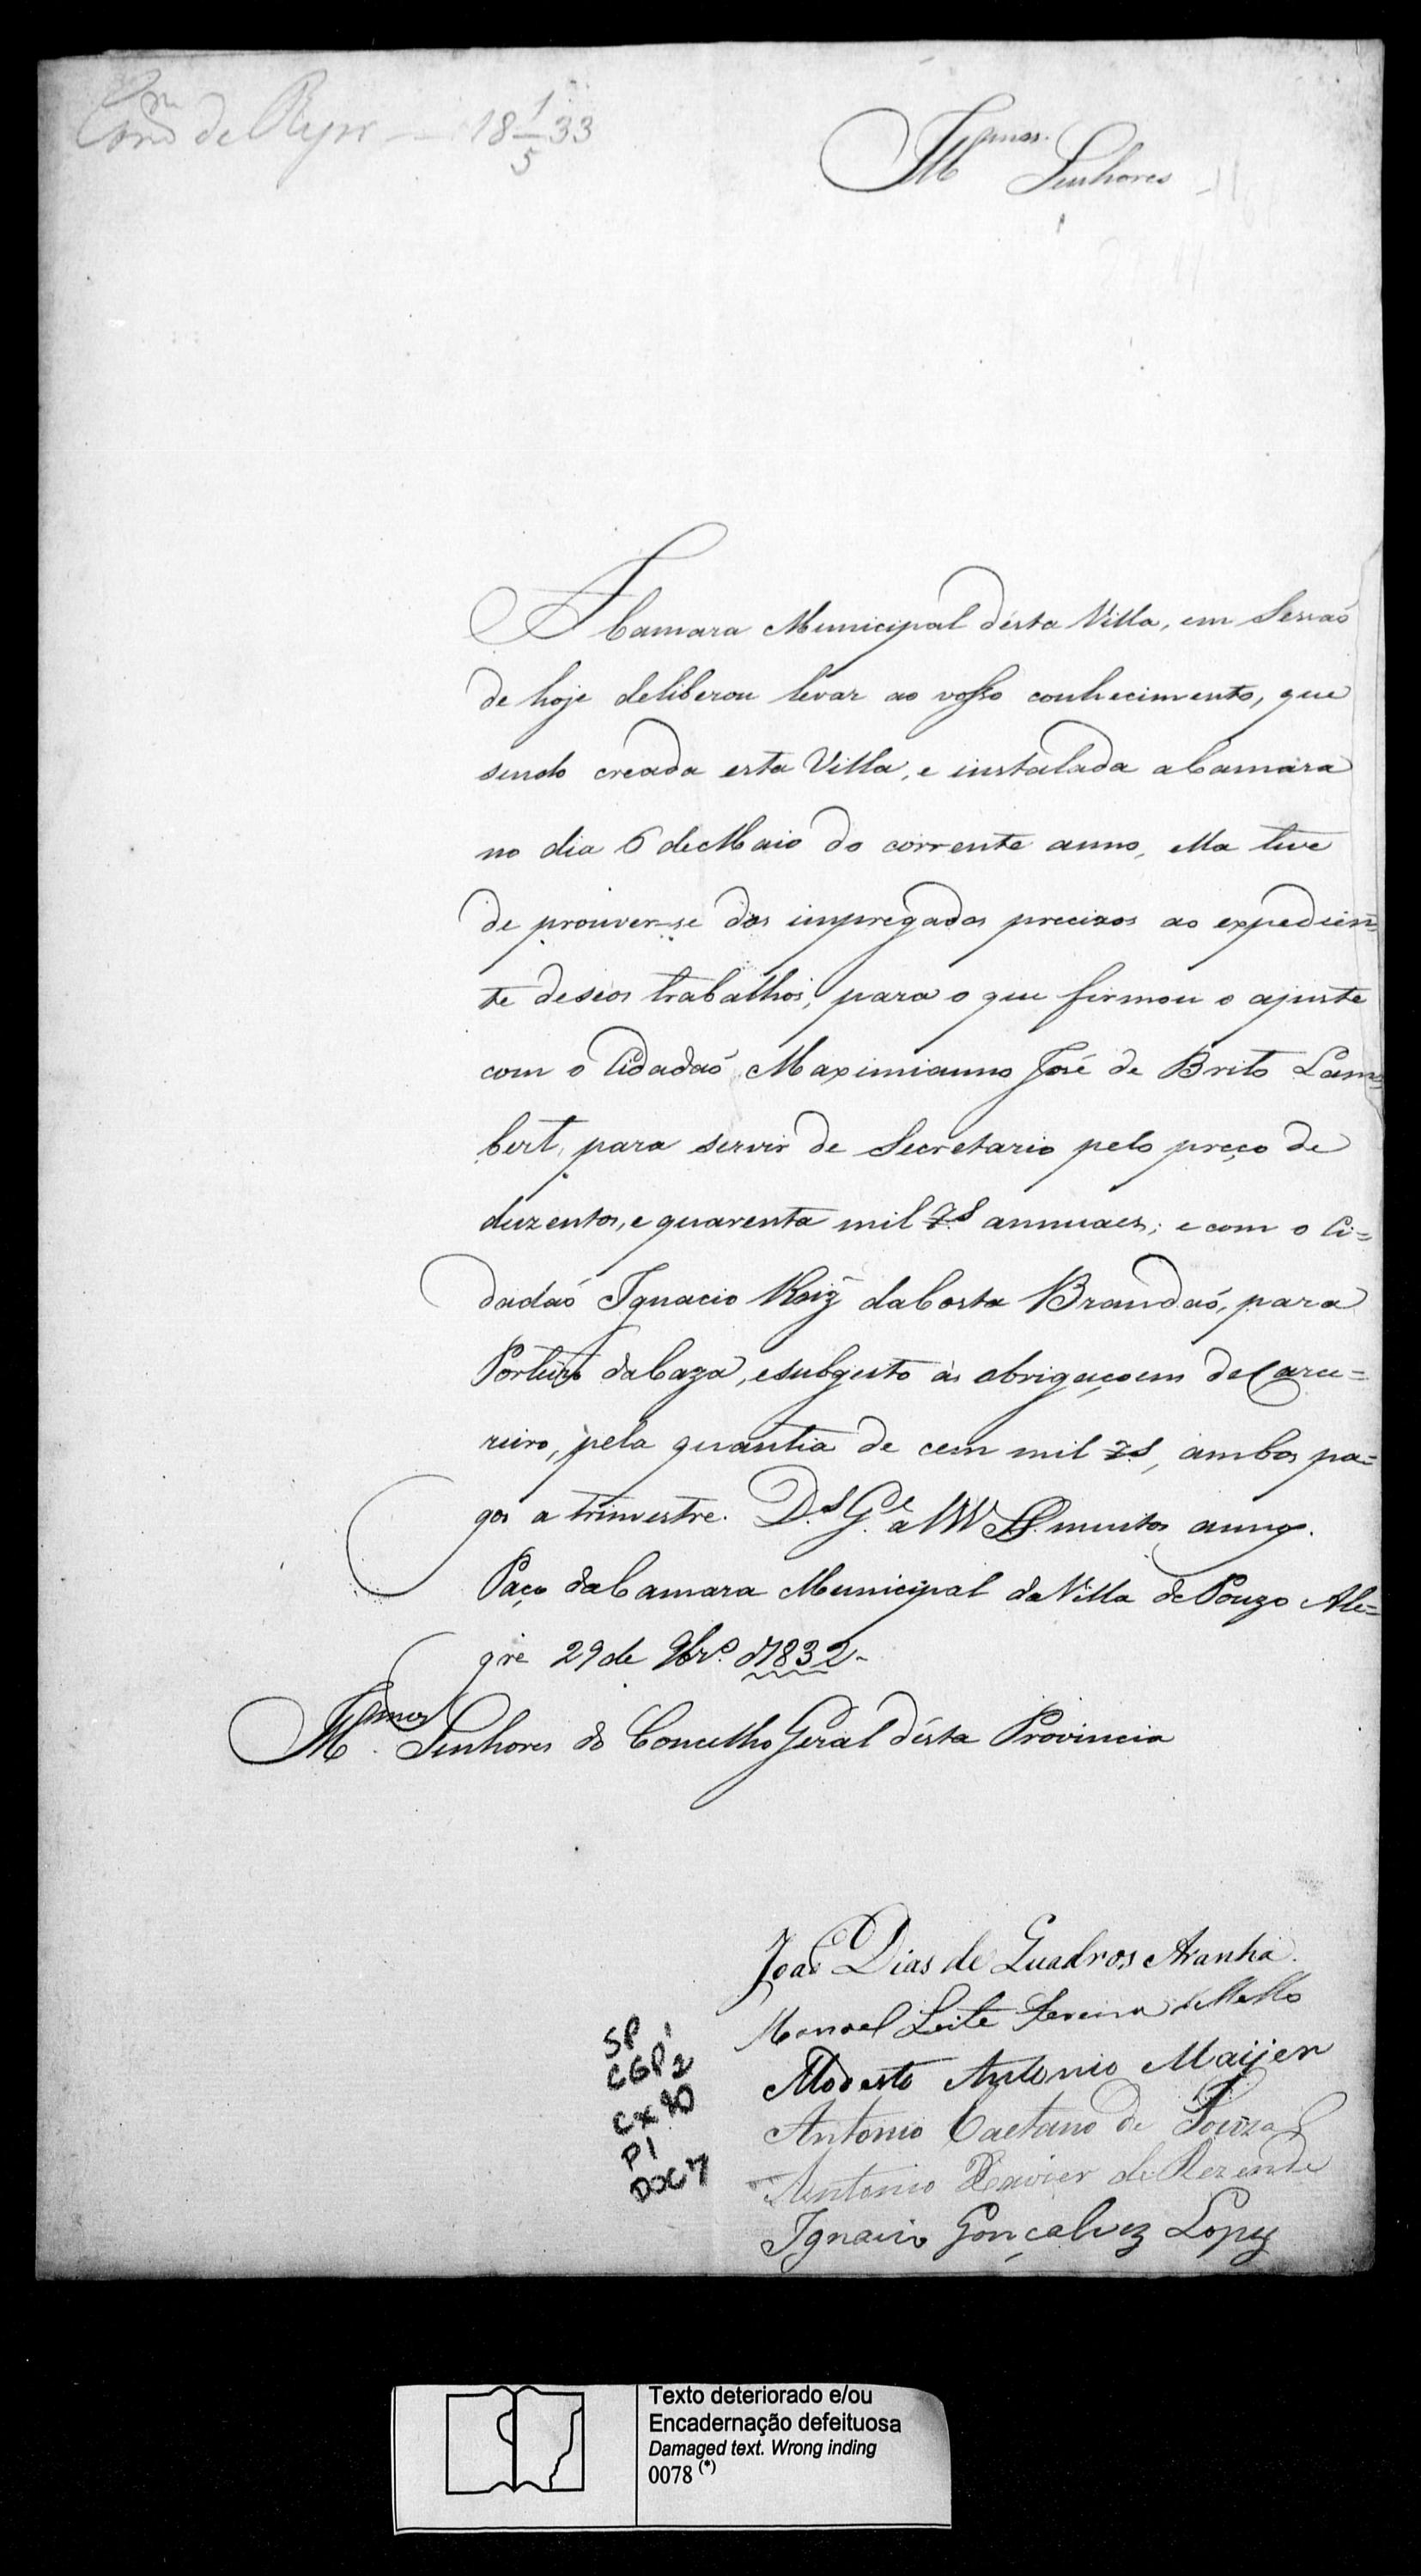 18 1/5 33
Illmos. Senhores
A Camara Municipal désta Villa, em Sessaõ
de hoje deliberou levar ao vosso conhecimento, que
sendo creada esta Villa, e instalada a Camara
no dia 6 de Maio do corrente anno, ella teve
de prouver-se dos impregados precizos ao expedien=
te de seos trabalhos, para o que firmou o ajuste
com o Cidadaõ Maximianno José de Brito Lam=
bert, para servir de Secretario pelo preço de
duzentos, e quarenta mil rs annuaes; e com o Ci=
dadaõ Ignacio Roiz̃ da Costa Brandaõ, para
Porteiro da Caza, e subgeito às obrigaçoens de Carce=
reiro, pela quantia de cem mil rs, ambos pa=
gos a trimestre. D.s G.e a VV SS. muitos annos.
Paço da Camara Municipal da Villa de Pouzo Ale=
gre 29 de 9br.o d'1832-
Illmos. Senhores do Concelho Geral désta Provincia
Joaõ Dias de Quadros Aranha.
Manoel Leite Pereira de Mello
Modesto Antonio Maijer
Antonio Caetano de Souza
Antonio Xavier de Rezende
Ignacio Gonçalvez Lopes
SP
CGP2
CX 10
P1
DOC 7
Texto deteriorado e/ou
Encadernação defeituosa
Damaged text. Wrong inding
0078 (*)